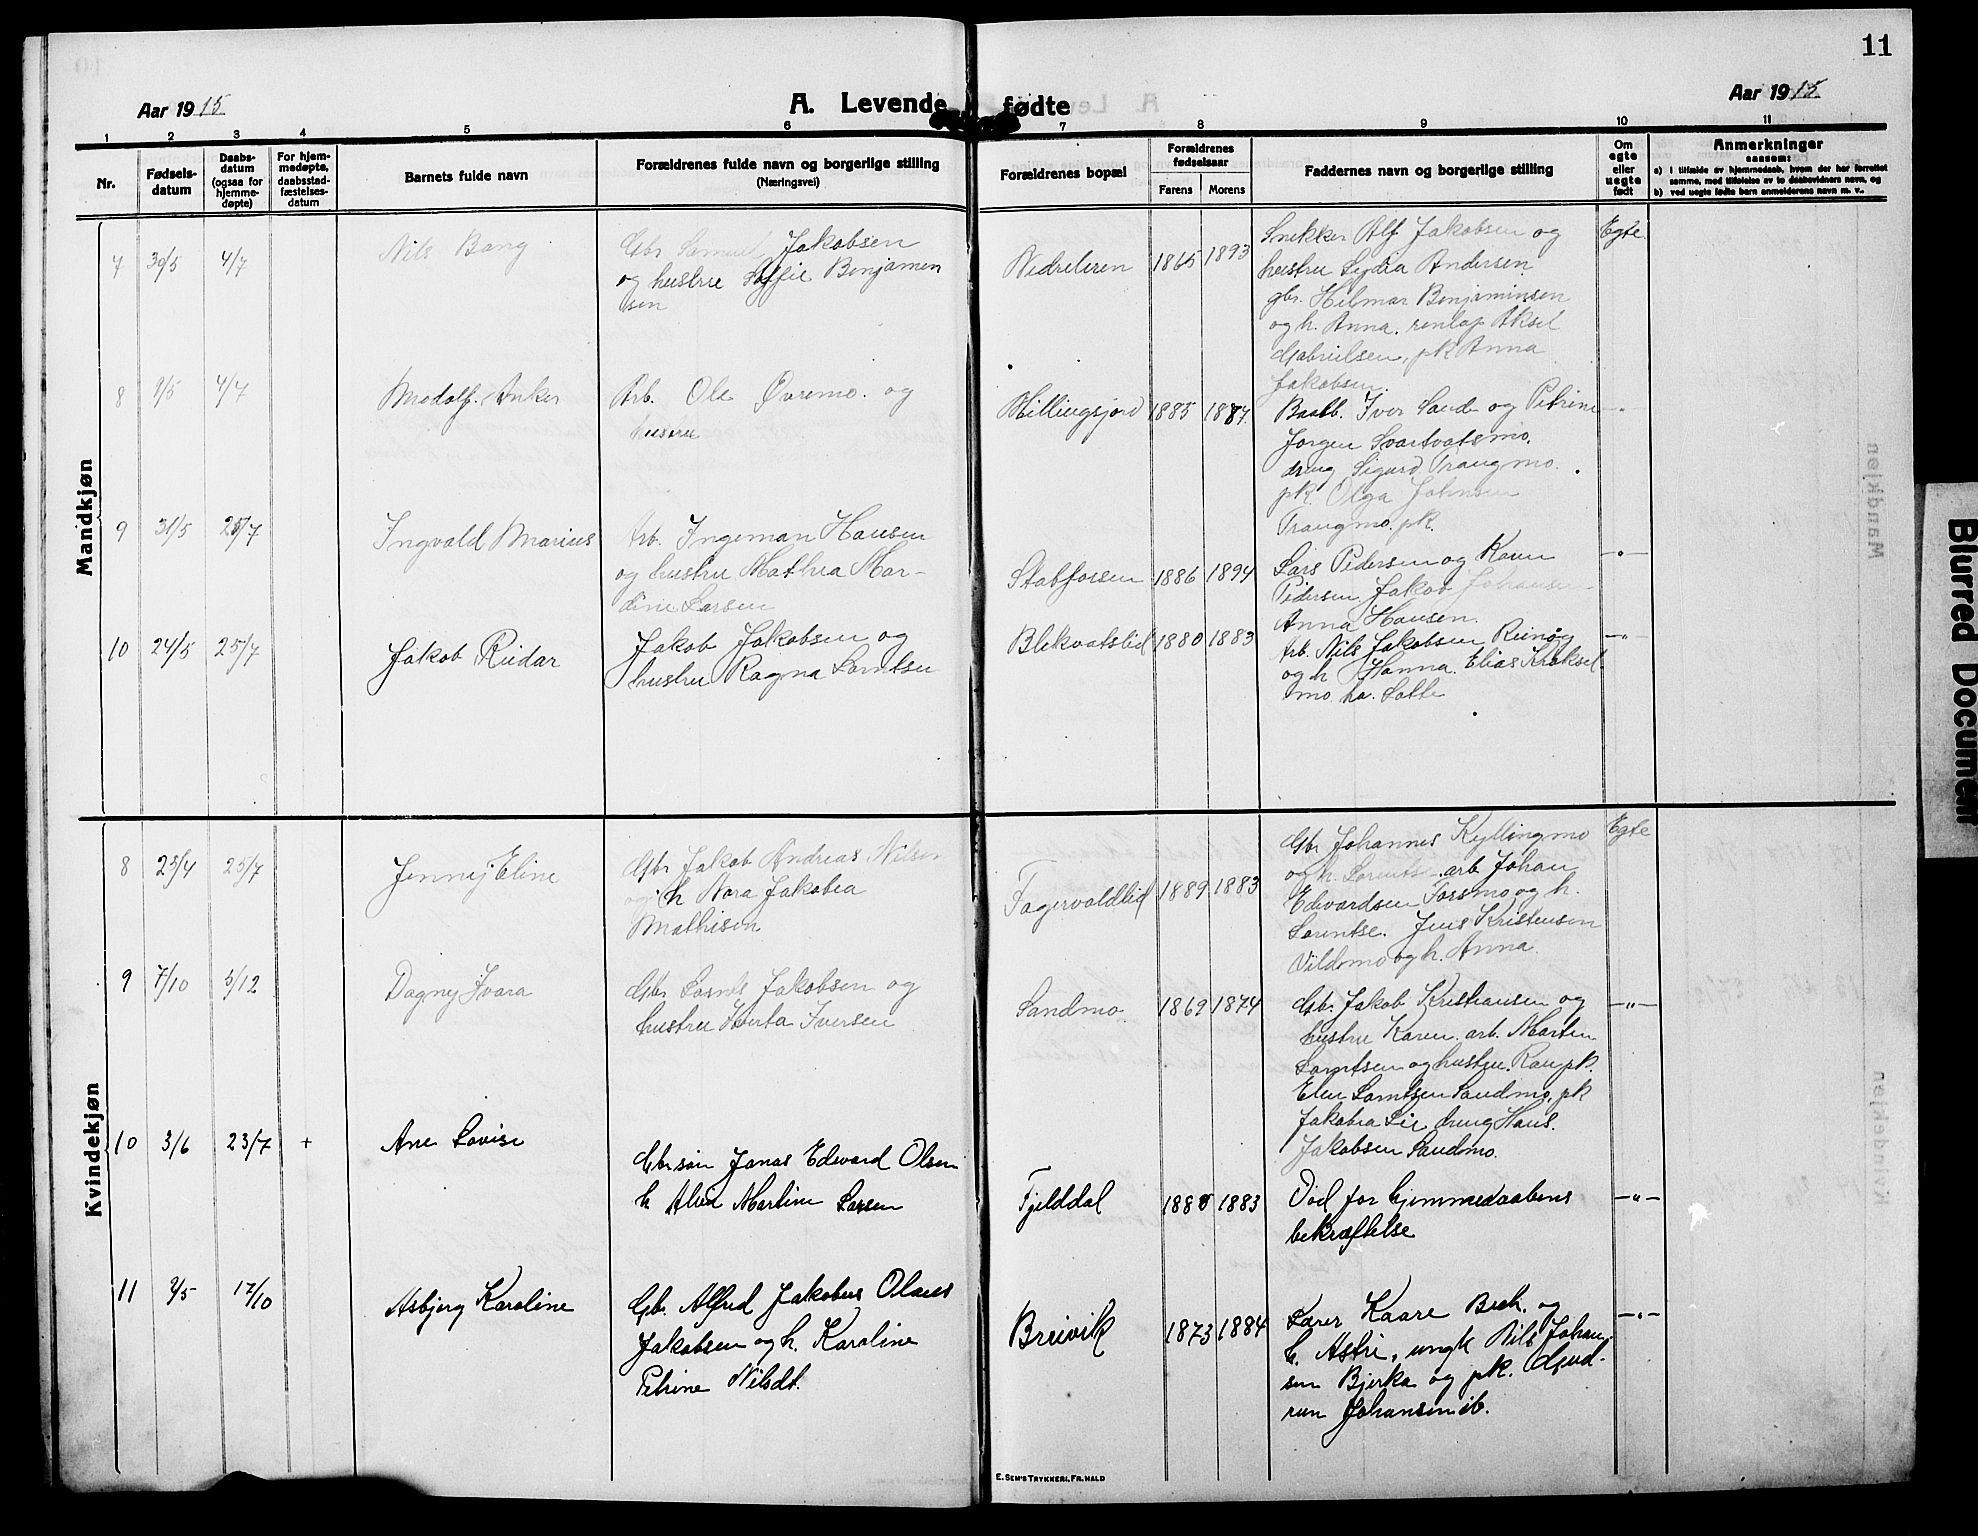 11
Aar 1915
A. Levende fødte
Aar 1915
1 2 3 4 5 6 7 8 9 10 11
Nr.
Fødsels-
datum
Daabs-
datum
(ogsaa for
hjemme-
døpte)
For hjem-
medøpte,
daabsstad-
fæstelses-
datum
Barnets fulde navn
Forældrenes fulde navn og borgerlige stilling
(Næringsvei)
Forældrenes bopæl
Forældrenes
fødselsaar
Farens Morens
Faddernes navn og borgerlige stilling
Om
egte
eller
uegte
født
Anmerkninger
saasom:
a) i tilfælde av hjemmedaab, hvem der har forrettet
samme, med tilføielse av to daabsvidners navn, og
b) ved uegte fødte barn anmelderens navn m. v.
Mandkjøn
7 30/5 4/7 Nils Bang
Gbr Samuel Jakobsen
og hustru Soffie Benjamen
sen
Nedreleren 1865 1893
Snekker Alf Jakobsen og
hustru Lydia Andersen
gbr. Hilmar Benjaminsen
og h. Anna. Aksel
Gabrielsen, pk Anna
Jakobsen.
Egte
8 9/5 4/7 Modolf. Anker
Arb. Ole Øvremo. og
hustru
Hillingsjord 1885 1887
Baatb. Iver Sand og Petrine
Jorgen Svartvatsmo.
dreng Sigurd Trangmo.
pk. Olga Johnsen
Trangmo. pk.
9 31/5 25/7 Ingvald Marius
Arb. Ingeman Hansen
og hustru Mathea Mar-
dine Larsen
Stabforsen 1886 1894
Lars Pedersen og Karen
Pedersen. Jakob Johansen
Anna Hansen.
10 24/5 25/7 Jakob Reidar
Jakob Jakobsen og
hustru Ragna Lorntsen
Blekvatslid 1880 1883
Arb. Nils Jakobsen
og h Hanna. Elias Kroksel
mo. ha. Lotte
Kvindekjøn
8 25/4 25/7 Jenney Eline
Gbr Jakob Andreas Nilsen
og h Nora Jakobea
Mathisen
Fagervoldlid 1889 1883
Gbr Johannes Kyllingmo
og h. Lorentse. arb Johan
Edvardsen Forsmo og h.
Lorentse. Jens Kristensen
Vildmo og h. Anna.
Egte
9 7/10 5/12 Dagny Ivara
Gbr Lornts Jakobsen og
hustru Iverta Iversen
Sandmo 1869 1874
Gbr Jakob Kristiansen og
hustru Karen. arb. Morten
Lorntsen og hustru.
Elen Lorntsen Sandmo. pk
Jakobea Lie dreng Hans.
Jakobsen Sandmo.
—"—
10 3/6 23/7 + Ane Lovise
Gbrsøn Jonas Edvard Olsen
h Martine Larsen
Fjelddal 1883
Død for hjemmedaabens
bekræftelse
—"—
11 9/5 17/10 Asbjørg Karoline
Gb. Alfred Jakobus Olaus
Jakobsen og h. Karoline
Petrine Nilsdt.
Breivik 1873 1884
Lærer Kaare Bech. og
h. Astri, ungk Nils Johan-
sen Bjerka og pk. Gud-
run Johansen ib.
—"—
E. Sem's Trykkeri, Fr.hald
Blurred Document